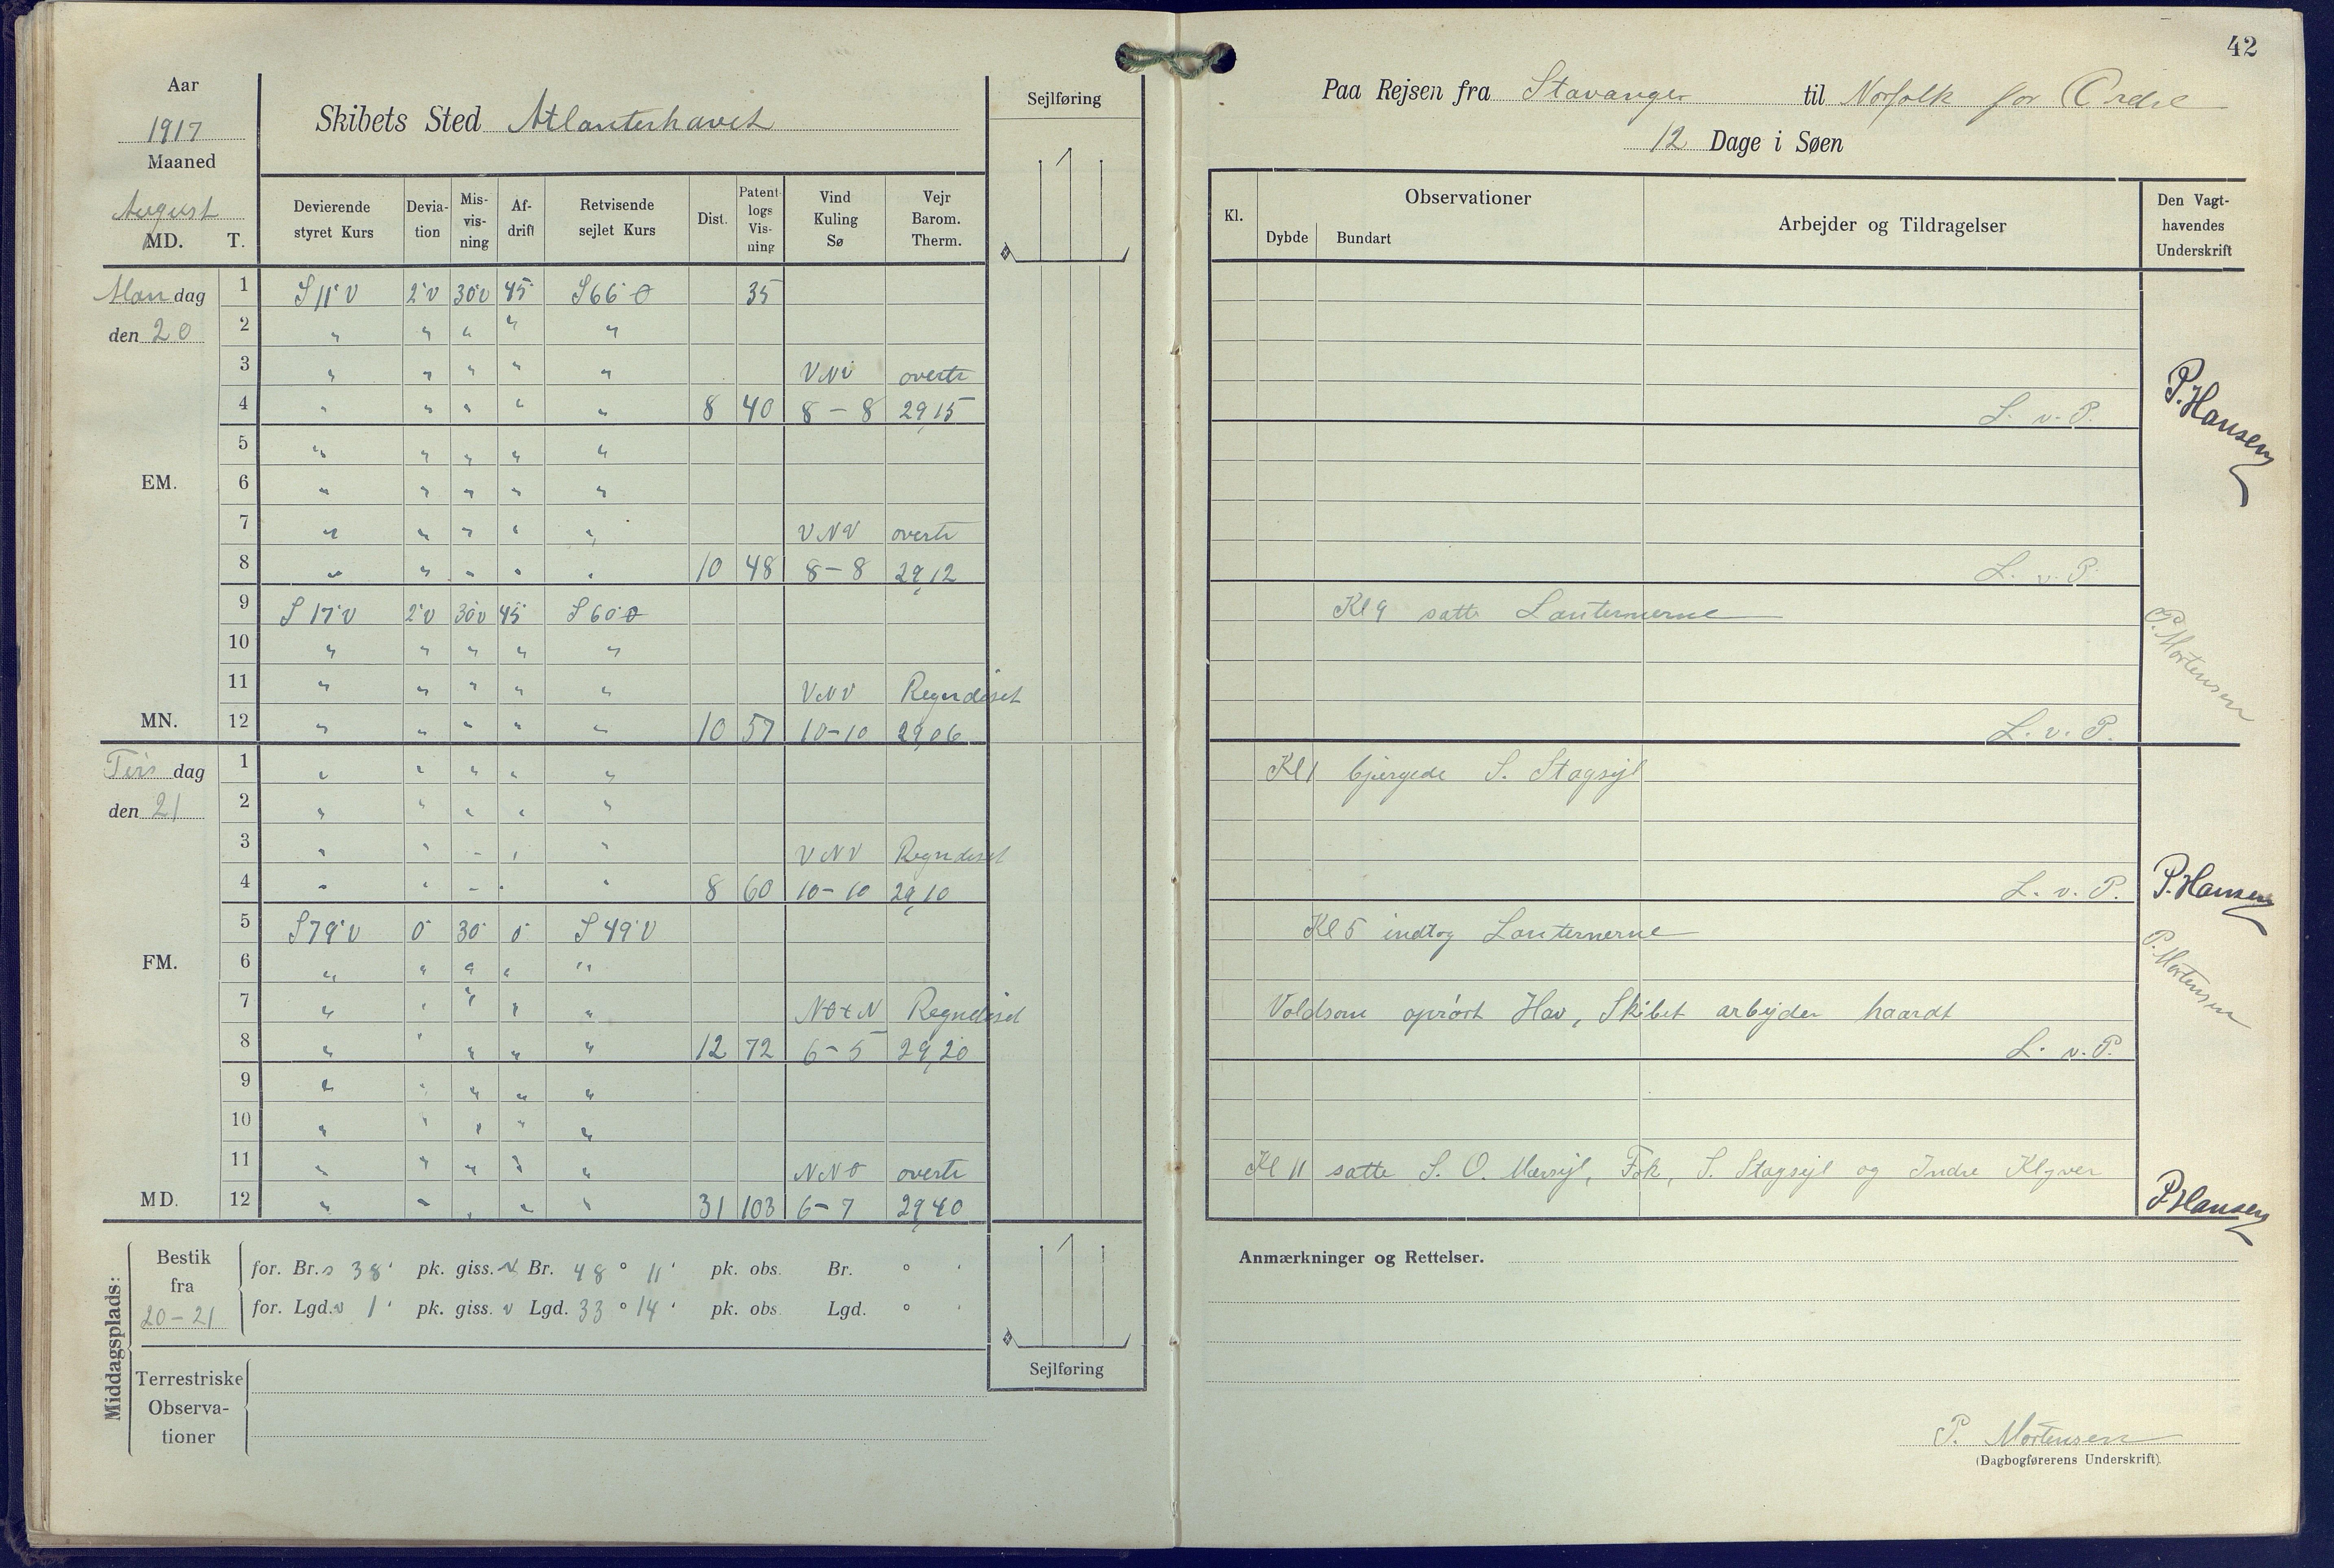 42
Aar
1917
Maaned
August
MD. T.
Skibets Sted Atlanterhavet
Sejlføring
Paa Rejsen fra Stavanger til Norfolk for Ordre
12 Dage i Søen
Devierende styret Kurs
Devia-tion
Mis-vis-ning
Af-drift
Retvisende sejlet Kurs
Dist.
Patent-logs Vis-ning
Vind Kuling Sø
Vejr Barom. Therm.
Kl.
Observationer
Dybde Bundart
Arbejder og Tildragelser
Den Vagt-havendes Underskrift
Mandag 1 S11°V 2°V 30°V 45° S66°O 35
den 20 2 " " " " "
3 " " " " " VNV overtr
4 " " " " " 8 40 8-8 29,15 L. v. P. P. Hansen
5 " " " " "
EM. 6 " " " " "
7 " " " " " VNV overtr
8 " " " " " 10 48 8-8 29,12 L. v. P.
9 S17°V 2°V 30°V 45° S60°O Kl 9 satte Lanternerne P. Mortensen
10 " " " " "
11 " " " " " VNV Regndiset
MN. 12 " " " " " 10 57 10-10 29,06 L. v. P.
Tirsdag 1 " " " " " Kl 1 bjergede S. Stagsejl
den 21 2 " " " " "
3 " " " " " VNV Regndiset
4 " " " " " 8 60 10-10 29,10 L. v. P. P. Hansen
5 S79°V 0° 30° 0° S49°V Kl 5 indtog Lanternerne P. Mortensen
FM. 6 " " " " "
7 " " " " " NOtN Regndiset Voldsom oprørt Hav, Skibet arbejder haardt
8 " " " " " 12 72 6-5 29,20 L. v. P.
9 " " " " "
10 " " " " "
11 " " " " " NNO overtr Kl 11 satte S. O. Mersejl, Fok, S. Stagsejl og Indre Klyver
MD. 12 " " " " " 31 103 6-7 29,40 P. Hansen
Middagsplads:
Bestik fra 20-21
for. Br. S 38' pk. giss. N Br. 48° 11' pk. obs. Br. ° '
for. Lgd. V 1' pk. giss. V Lgd. 33° 14' pk. obs. Lgd. ° '
Sejlføring
Terrestriske Observa-tioner
Anmærkninger og Rettelser.
P. Mortensen
(Dagbogførerens Underskrift).